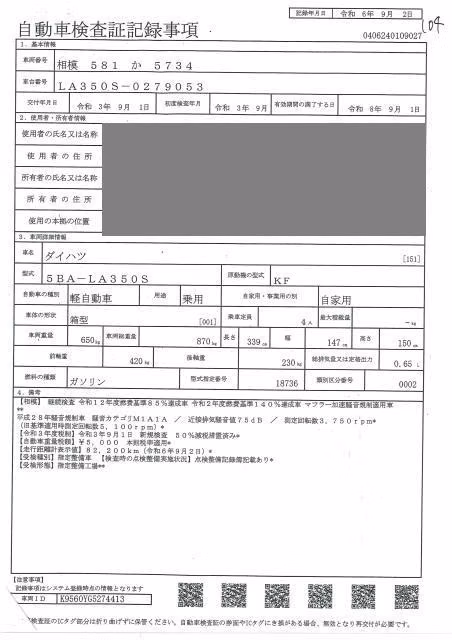 記録年月日 令和 6年 9月 2日
104
自動車検査証記録事項
0406240109027
1. 基本情報
車両番号 相模 581 か 5734
車台番号 LA350S-0279053
交付年月日 令和 3年 9月 1日 初度検査年月 令和 3年 9月 有効期間の満了する日 令和 8年 9月 1日
2. 使用者・所有者情報
使用者の氏名又は名称
使用者の住所
所有者の氏名又は名称
所有者の住所
使用の本拠の位置
3. 車両詳細情報
車名 ダイハツ [151]
型式 5BA-LA350S 原動機の型式 KF
自動車の種別 軽自動車 用途 乗用 自家用・事業用の別 自家用
車体の形状 箱型 [001] 乗車定員 4人 最大積載量 -kg
車両重量 650kg 車両総重量 870kg 長さ 339cm 幅 147cm 高さ 150cm
前軸重 420kg 後軸重 230kg 総排気量又は定格出力 0.65L
燃料の種類 ガソリン 型式指定番号 18736 類別区分番号 0002
4. 備考
【相模】 継続検査 令和12年度燃費基準85%達成車 令和2年度燃費基準140%達成車 マフラー加速騒音規制適用車
**
平成28年騒音規制車 騒音カテゴリM1A1A / 近接排気騒音値75dB / 測定回転数3,750rpm*
(旧基準適用時測定回転数5,100rpm)*
【令和3年度税制】令和3年9月1日 新規検査 50%減税措置済み*
【自動車重量税額】¥5,000 本則税率適用*
【走行距離計表示値】82,200km(令和6年9月2日)*
【受検種別】指定整備車 【検査時の点検整備実施状況】点検整備記録簿記載あり*
【受検形態】指定整備工場**
【注意事項】
記録事項はシステム登録時点の情報となります
車両ID K9560YG5274413
検査証のICタグ部分は折り曲げずに保管ください。自動車検査証の券面やICタグにき損がある場合、無効となり再交付が必要です。